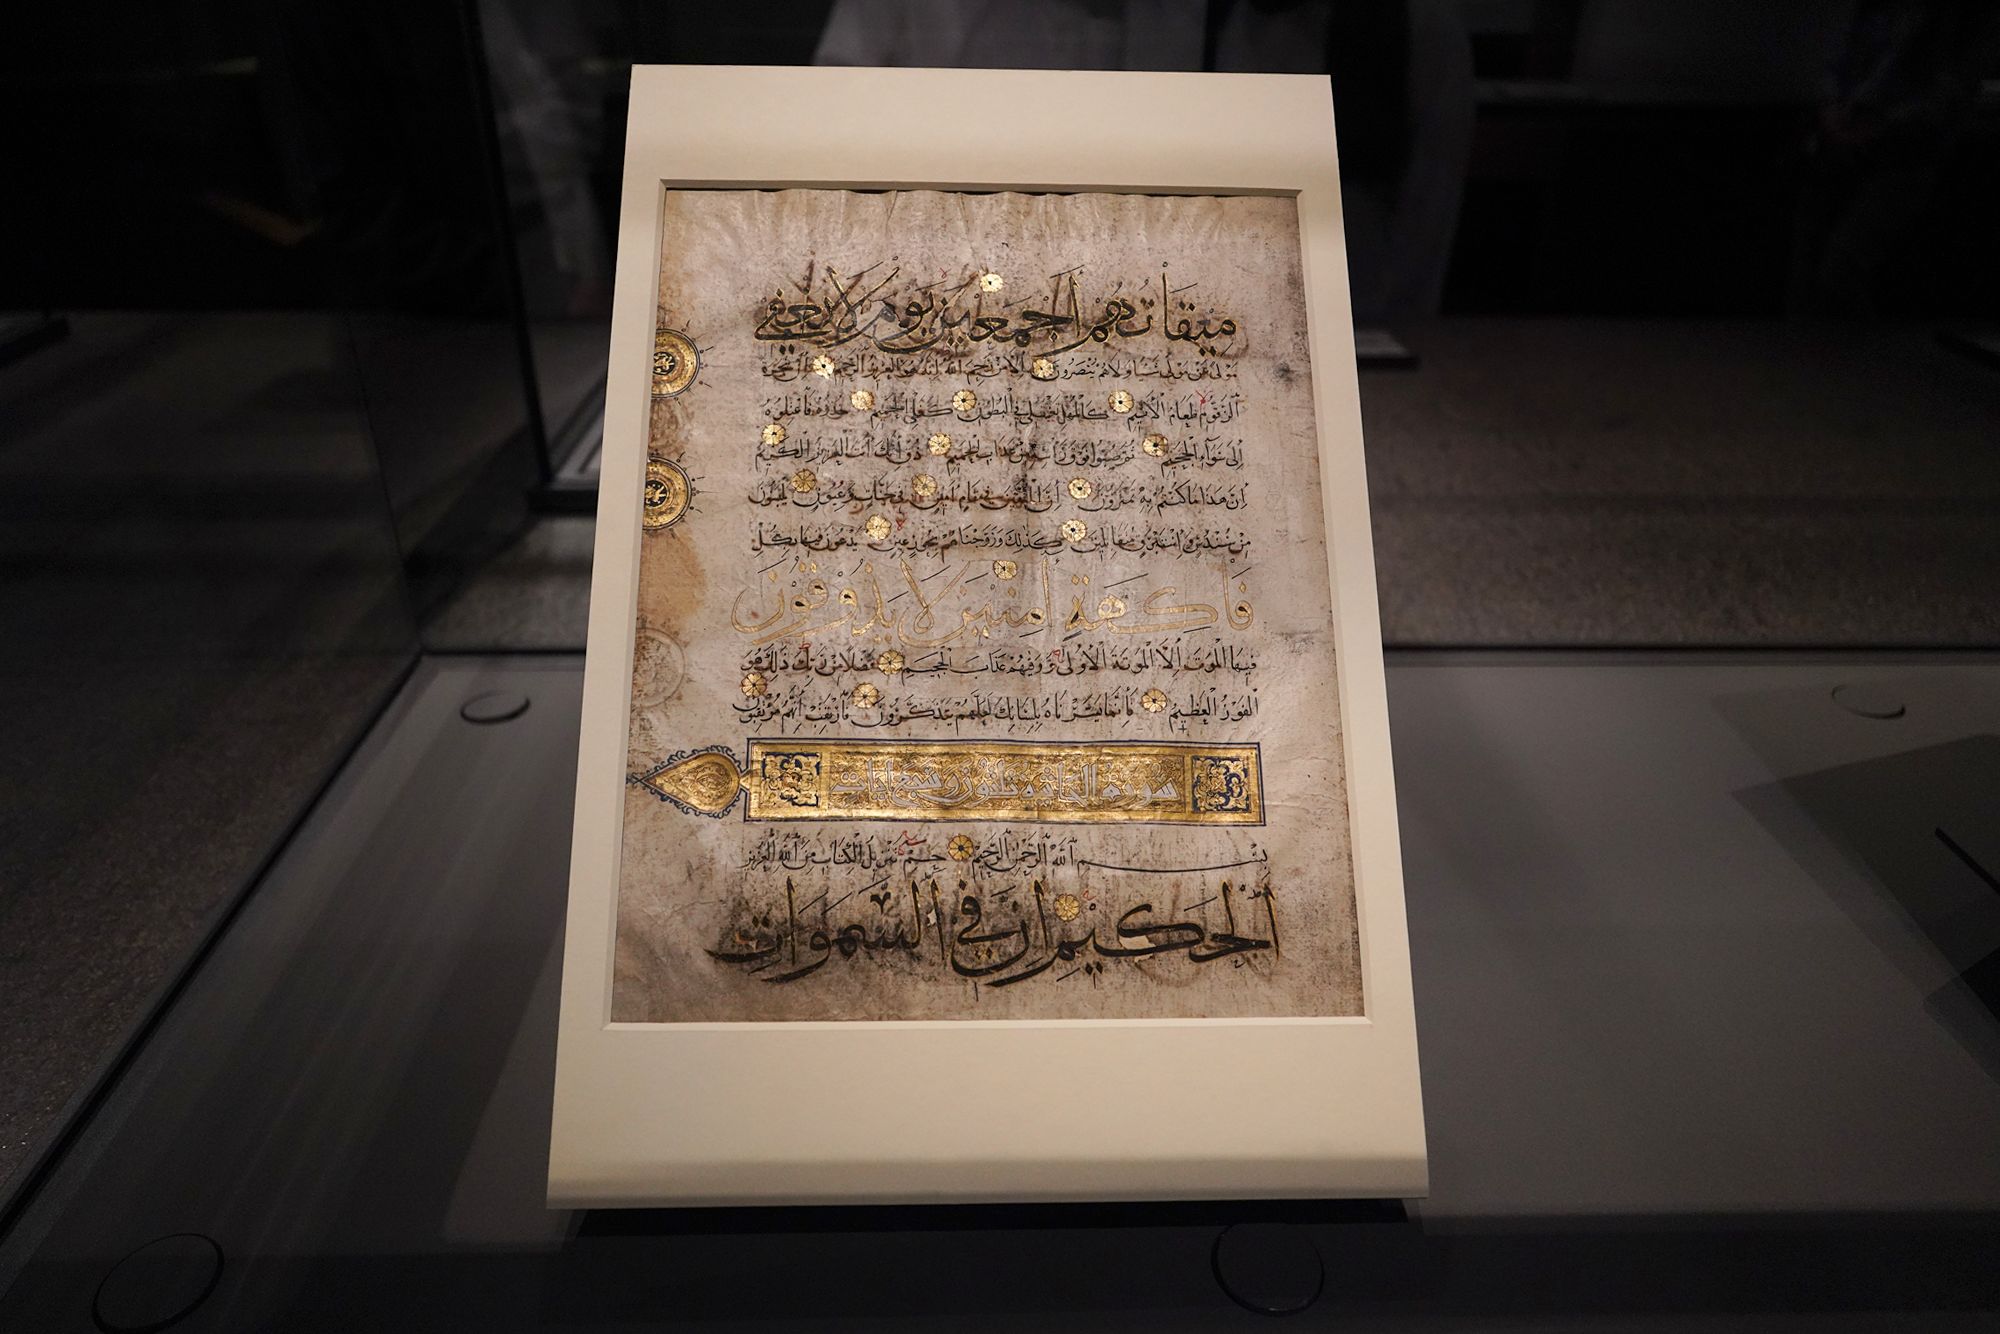 مِيقَاتُهُمْ أَجْمَعِينَ يَوْمَ لَا يُغْنِي
مَوْلًى عَنْ مَوْلًى شَيْئًا وَلَا هُمْ يُنْصَرُونَ إِلَّا مَنْ رَحِمَ اللَّهُ إِنَّهُ هُوَ الْعَزِيزُ الرَّحِيمُ إِنَّ شَجَرَةَ
الزَّقُّومِ طَعَامُ الْأَثِيمِ كَالْمُهْلِ يَغْلِي فِي الْبُطُونِ كَغَلْيِ الْحَمِيمِ خُذُوهُ فَاعْتِلُوهُ
إِلَى سَوَاءِ الْجَحِيمِ ثُمَّ صُبُّوا فَوْقَ رَأْسِهِ مِنْ عَذَابِ الْحَمِيمِ ذُقْ إِنَّكَ أَنْتَ الْعَزِيزُ الْكَرِيمُ
إِنَّ هَذَا مَا كُنْتُمْ بِهِ تَمْتَرُونَ إِنَّ الْمُتَّقِينَ فِي مَقَامٍ أَمِينٍ فِي جَنَّاتٍ وَعُيُونٍ يَلْبَسُونَ
مِنْ سُنْدُسٍ وَإِسْتَبْرَقٍ مُتَقَابِلِينَ كَذَلِكَ وَزَوَّجْنَاهُمْ بِحُورٍ عِينٍ يَدْعُونَ فِيهَا بِكُلِّ
فَاكِهَةٍ آمِنِينَ لَا يَذُوقُونَ
فِيهَا الْمَوْتَ إِلَّا الْمَوْتَةَ الْأُولَى وَوَقِيهُمْ عَذَابَ الْجَحِيمِ فَضْلًا مِنْ رَبِّكَ ذَلِكَ هُوَ
الْفَوْزُ الْعَظِيمُ فَإِنَّمَا يَسَّرْنَاهُ بِلِسَانِكَ لَعَلَّهُمْ يَتَذَكَّرُونَ فَارْتَقِبْ إِنَّهُمْ مُرْتَقِبُونَ
سورة الجاثية ثلثون وسبع ايات
بِسْمِ اللَّهِ الرَّحْمَنِ الرَّحِيمِ حم تَنْزِيلُ الْكِتَابِ مِنَ اللَّهِ الْعَزِيزِ
الْحَكِيمِ إِنَّ فِي السَّمَوَاتِ